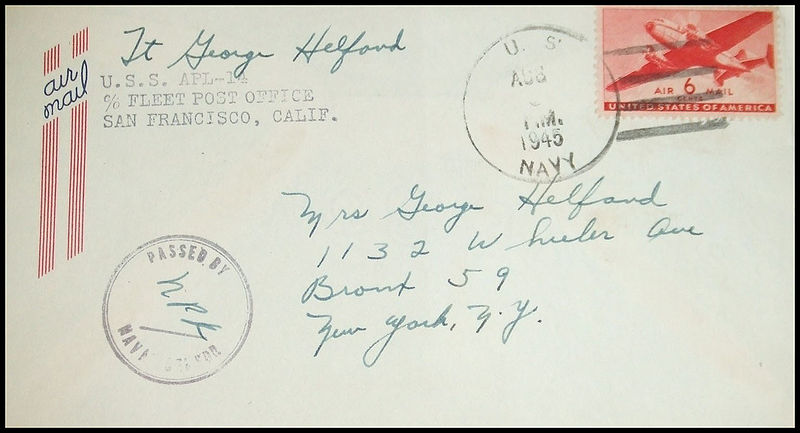 air
mail
Lt George Helfand
U.S.S. APL-14
% FLEET POST OFFICE
SAN FRANCISCO, CALIF.
U. S.
AUG
1945
NAVY
AIR 6 MAIL
CENTS
UNITED STATES OF AMERICA
Mrs George Helfand
1132 Wheeler Ave
Bronx 59
New York, N.Y.
PASSED BY
NAVAL CENSOR